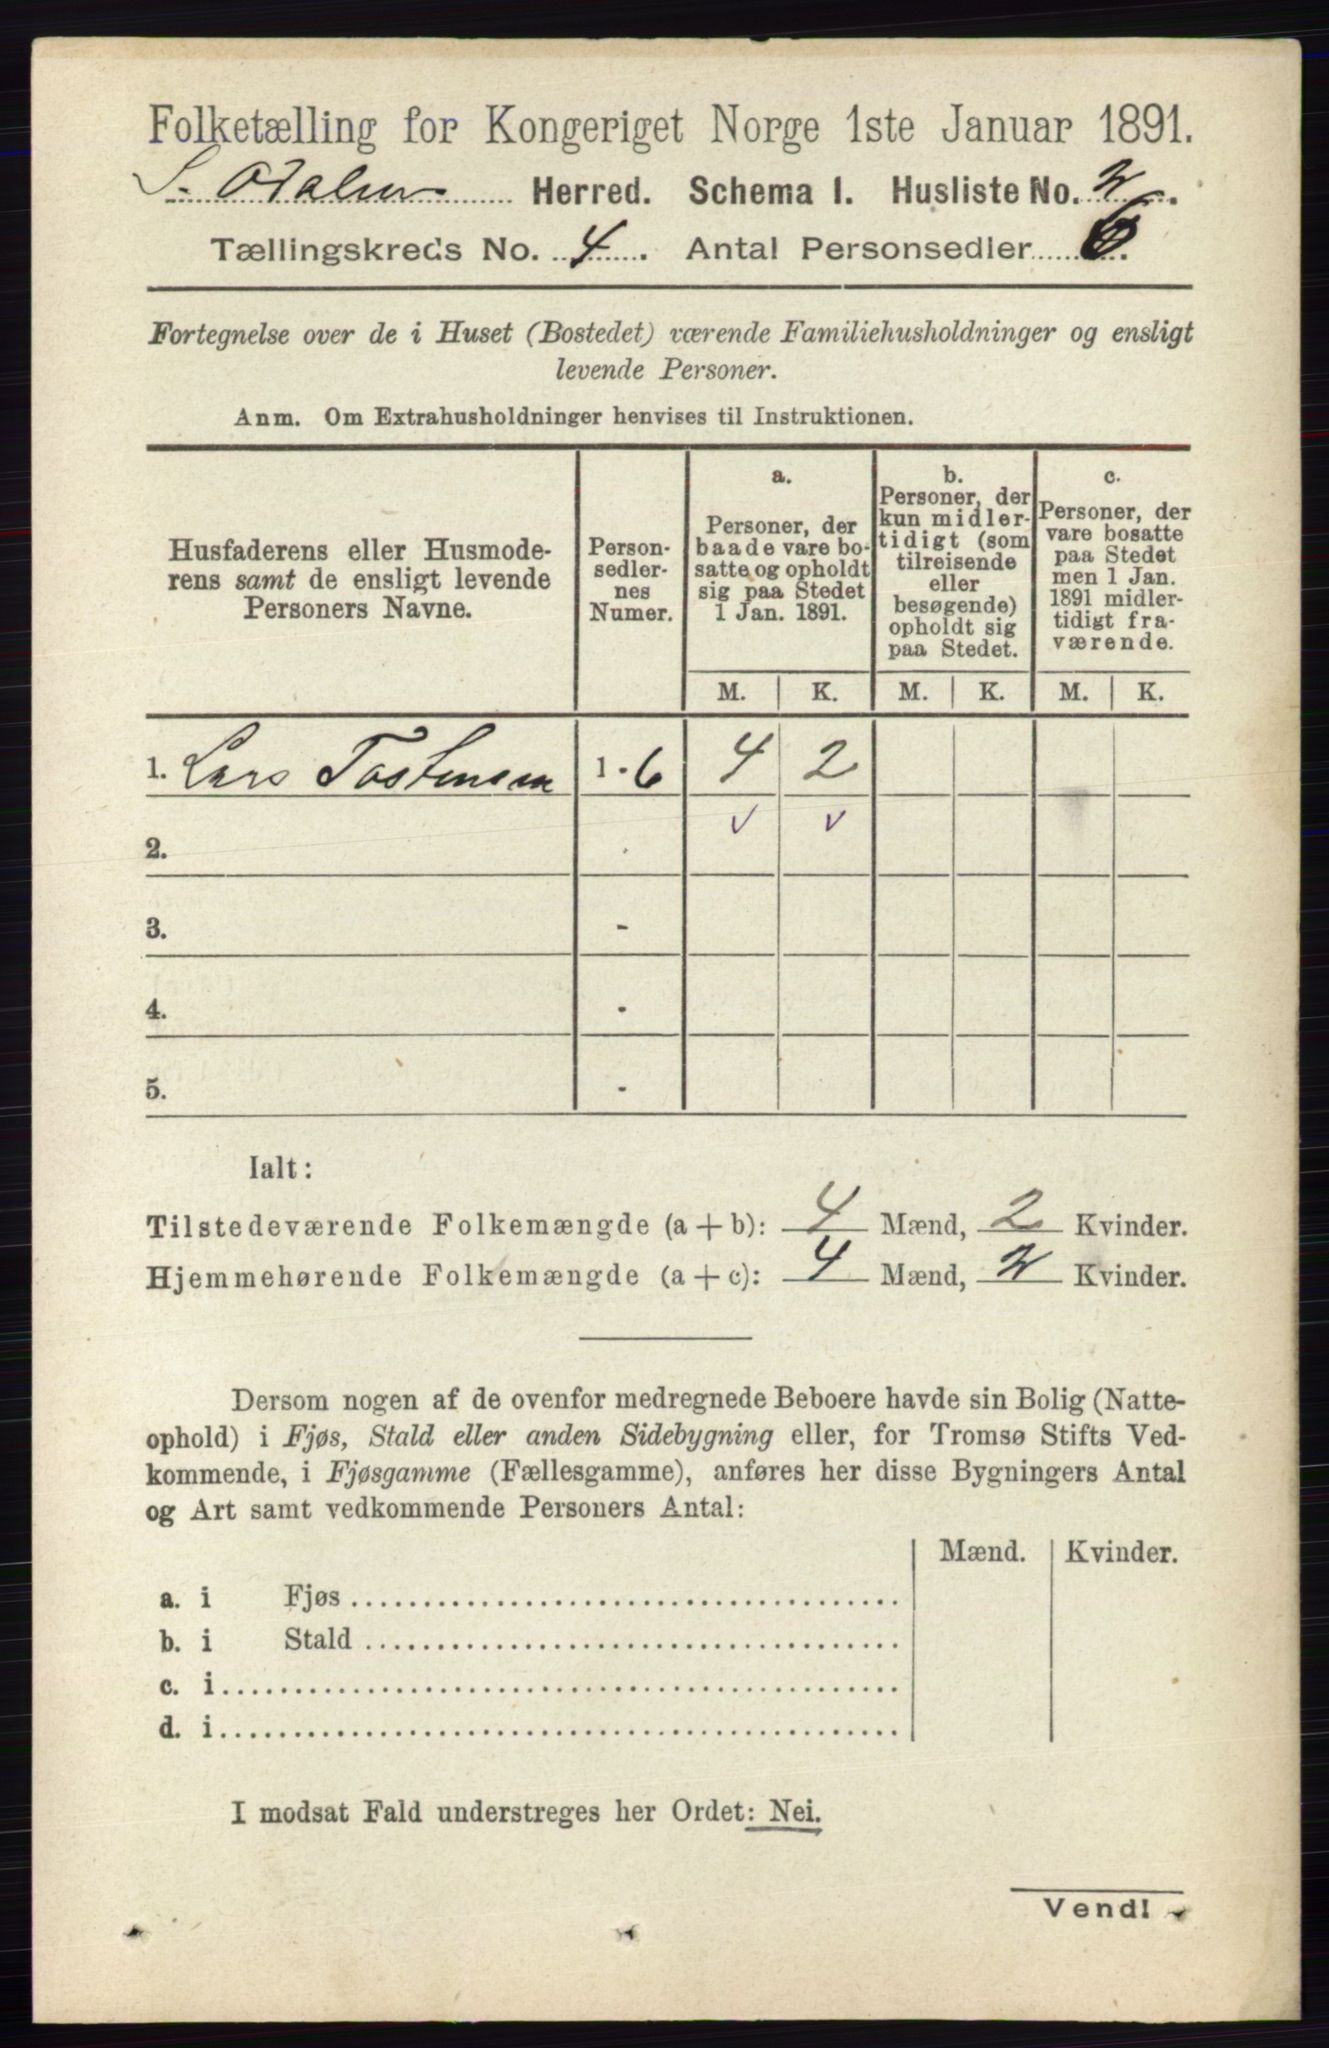 Folketælling for Kongeriget Norge 1ste Januar 1891.
S. Odalen Herred. Schema 1. Husliste No. 2.
Tællingskreds No. 4. Antal Personsedler 6.
Fortegnelse over de i Huset (Bostedet) værende Familiehusholdninger og ensligt
levende Personer.
Anm. Om Extrahusholdninger henvises til Instruktionen.
Husfaderens eller Husmode-
rens samt de ensligt levende
Personers Navne.
Person-
sedler-
nes
Numer.
a.
Personer, der
baade vare bo-
satte og opholdt
sig paa Stedet
1 Jan. 1891.
b.
Personer, der
kun midler-
tidigt (som
tilreisende
eller
besøgende)
opholdt sig
paa Stedet.
c.
Personer, der
vare bosatte
paa Stedet
men 1 Jan.
1891 midler-
tidigt fra-
værende.
M. K. M. K. M. K.
1. Lars Tostensen 1 - 6 4 2
2. v v
3. -
4. -
5. -
Ialt:
Tilstedeværende Folkemængde (a + b): 4 Mænd, 2 Kvinder.
Hjemmehørende Folkemængde (a + c): 4 Mænd, 2 Kvinder.
Dersom nogen af de ovenfor medregnede Beboere havde sin Bolig (Natte-
ophold) i Fjøs, Stald eller anden Sidebygning eller, for Tromsø Stifts Ved-
kommende, i Fjøsgamme (Fællesgamme), anføres her disse Bygningers Antal
og Art samt vedkommende Personers Antal:
Mænd. Kvinder.
a. i Fjøs
b. i Stald
c. i
d. i
I modsat Fald understreges her Ordet: Nei.
Vend!